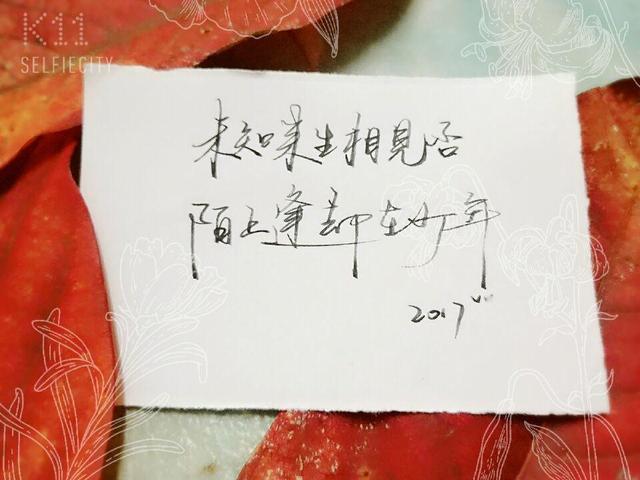 K11
SELFIECITY
未知来生相見否
陌上逢却在少年
2017